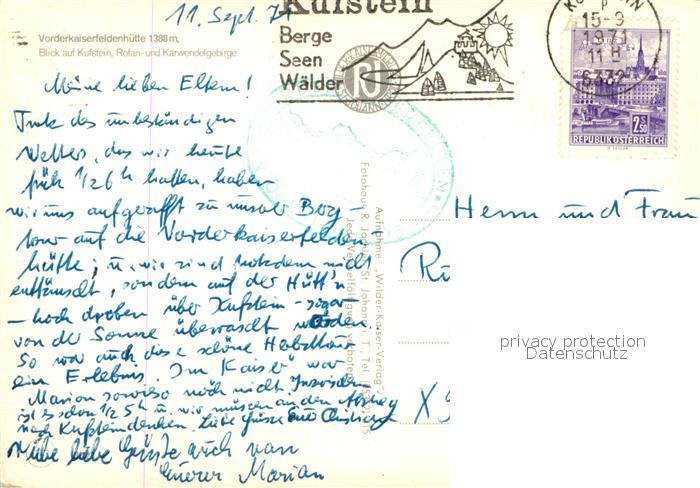 11. Sept. 71
Vorderkaiserfeldenhütte 1388 m,
Blick auf Kufstein, Rofan- und Karwendelgebirge
Kufstein
Berge
Seen
Wälder
15-9
1971
11 H
6332
2.50
REPUBLIK ÖSTERREICH
Meine lieben Eltern!
Trotz des unbeständigen
Wetters, das wir heute
früh 1/2 6h hatten, haben
wir uns aufgerafft zu unserer Berg-
tour auf die Vorderkaiserfelden-
hütte; u. wir sind trotzdem nicht
enttäuscht, sondern auf der Hütt'n
– hoch droben über Kufstein – sogar
von der Sonne überrascht worden.
So war auch diese schöne Herbsttour
ein Erlebnis. Im "Kaiser" war
Marion sowieso noch nicht. Inzwischen
ist es schon 1/2 5h u. wir müssen an den Abstieg
nach Kufstein denken. Liebe Grüsse
liebe Grüsse auch von
Eurer Marian
Herrn und Frau
privacy protection
Datenschutz